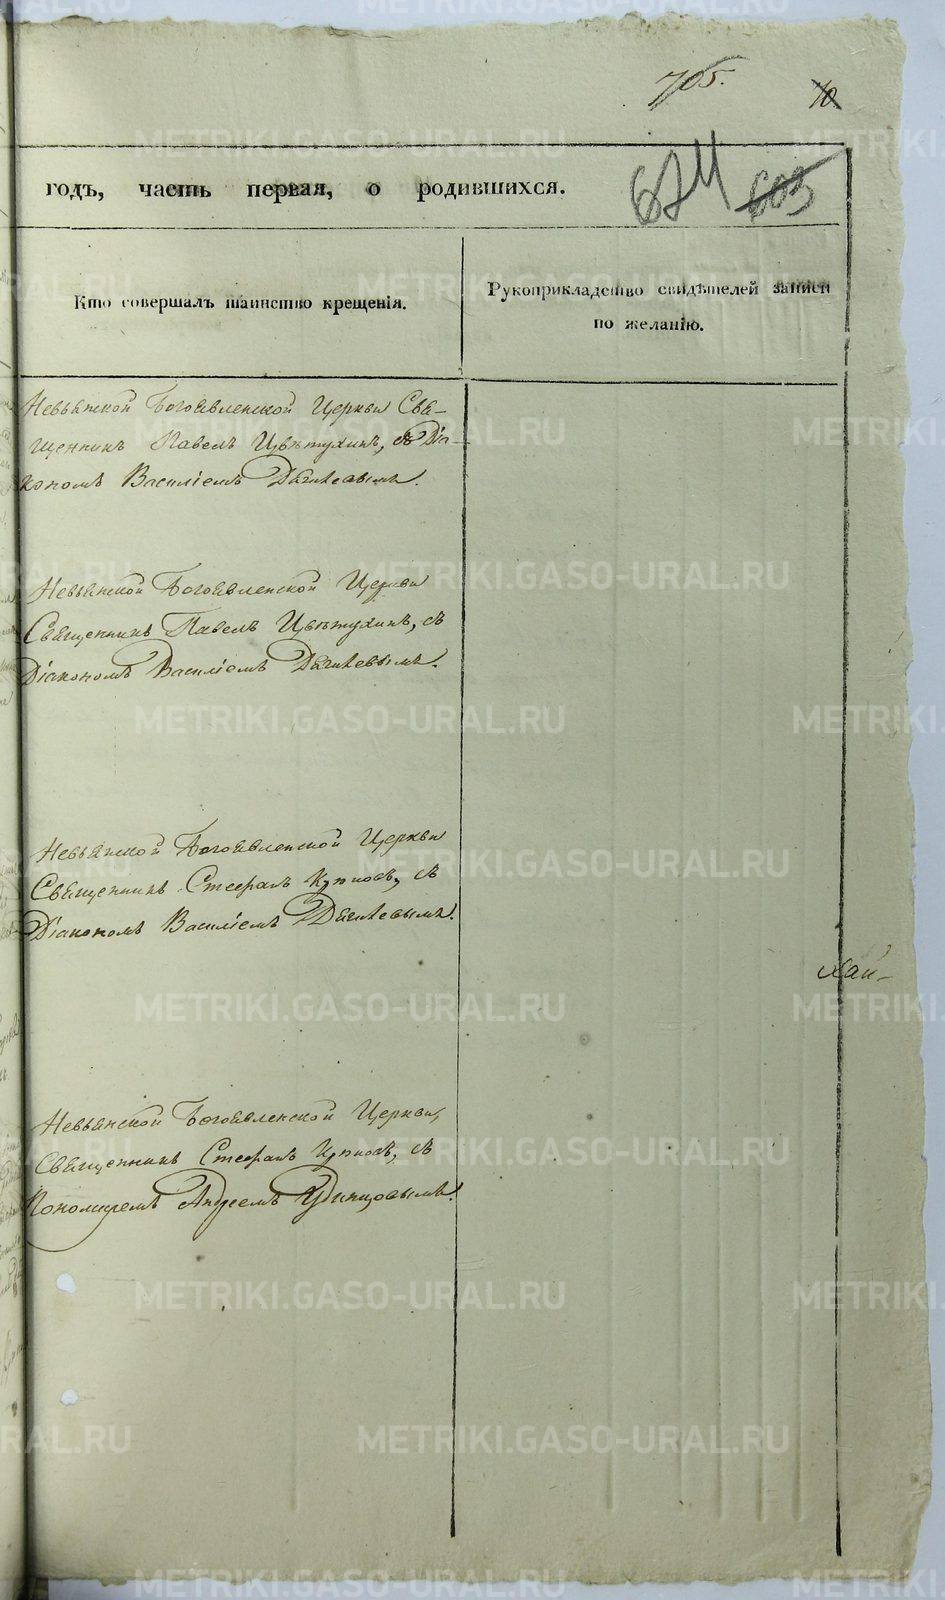 705.
10
годъ, часть первая, о родившихся.
674 603
Кто совершалъ таинство крещенія.
Рукоприкладство свидѣтелей записи
по желанію.
Невьянской Богоявленской Церкви Свя-
щенникъ Павелъ Цвѣтухинъ, съ Діа-
кономъ Василіемъ Дягилевымъ.
Невьянской Богоявленской Церкви
Священникъ Павелъ Цвѣтухинъ, съ
Діакономъ Василіемъ Дягилевымъ.
Невьянской Богоявленской Церкви
Священникъ Стефанъ, съ
Діакономъ Василіемъ Дягилевымъ.
Невьянской Богоявленской Церкви,
Священникъ Стефанъ, съ
Пономаремъ Андреемъ Удинцовымъ.
METRIKI.GASO-URAL.RU